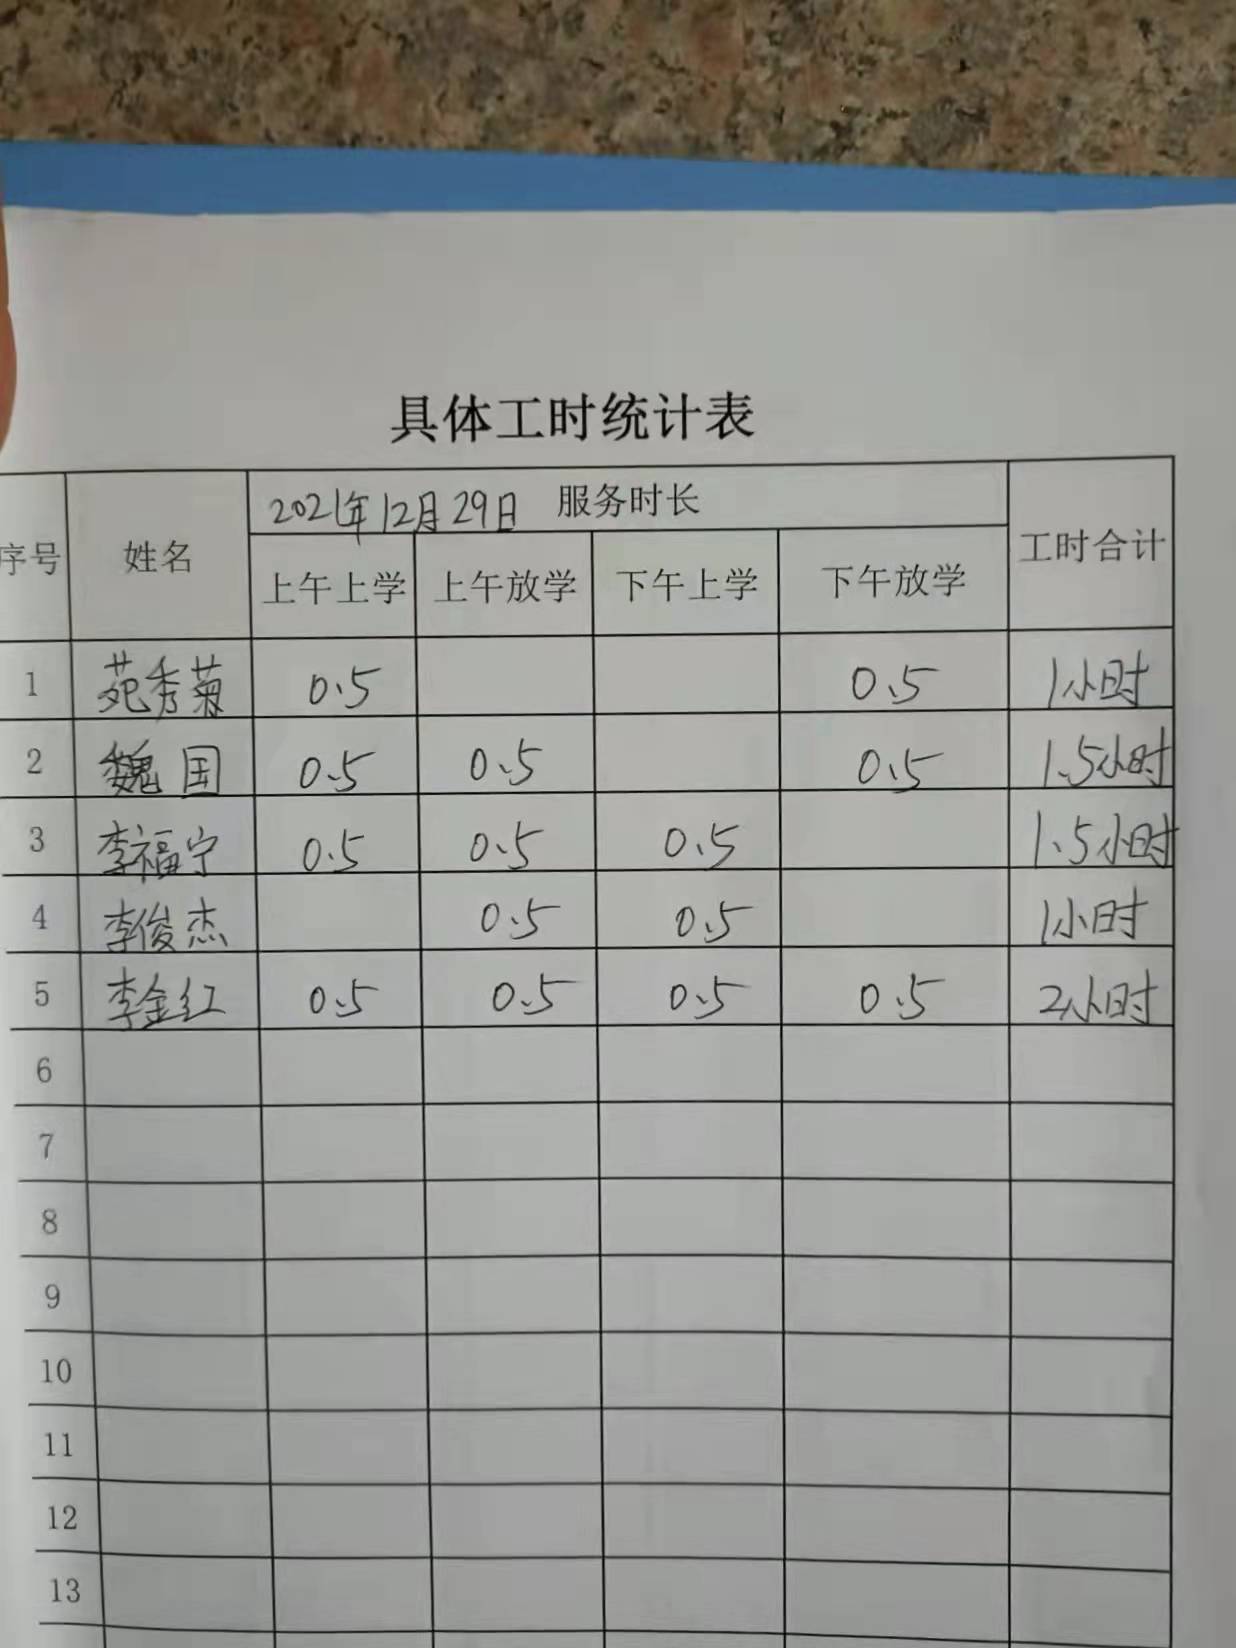 具体工时统计表
序号 姓名 2021年12月29日 服务时长 工时合计
上午上学 上午放学 下午上学 下午放学
1 苑秀菊 0.5 0.5 1小时
2 魏国 0.5 0.5 0.5 1.5小时
3 李福宁 0.5 0.5 0.5 1.5小时
4 李俊杰 0.5 0.5 1小时
5 李金红 0.5 0.5 0.5 0.5 2小时
6
7
8
9
10
11
12
13